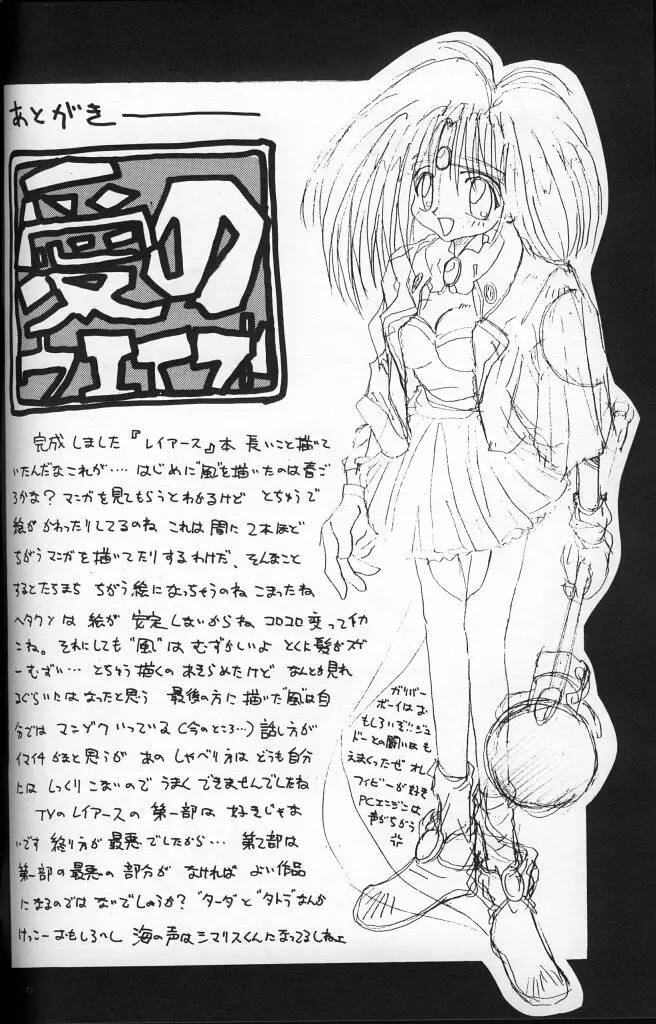 あとがき
愛の
完成しました『レイアース』本 長いこと描いて
いたんだなこれが‥‥ はじめに"風"を描いたのは春ご
ろかな？マンガを見てもらうとわかるけど とちゅうで
絵が かわったりしてるのね これは間に2本ほど
ちがうマンガを描いてたりするわけだ、そんなこと
するとたちまち ちがう絵になっちゃうのね こまったね
ヘタクソは 絵が 安定しないからね コロコロ変ってイカ
こね。それにしても"風"は むずかしいよ とくに髪がスゲ
ーむずい‥‥ とちゅう描くの あきらめたけど なんとか見れ
るぐらいには なったと思う 最後の方に描いた"風"は自
分では マンゾクいっている(今のところ‥‥)話し方が
イマイチかなと思うが あの しゃべり方は どうも自分
には しっくりこないので うまく できませんでしたね
TVのレイアースの 第一部は 好きじゃな
いです 終り方が最悪でしたから‥‥ 第2部は
第一部の最悪の 部分が なければ よい作品
になるのでは ないでしょうか？"ターダ"と"タトラ"なんか
けっこーおもしろいし 海の声はシマリスくんになってるしねェ
ガリバー
ボーイはお
もしろいぞ!!ジュ
ドーとの闘いはも
えまくったぜ オレ
フィビーが好き
PCエンジンは
声がちがう